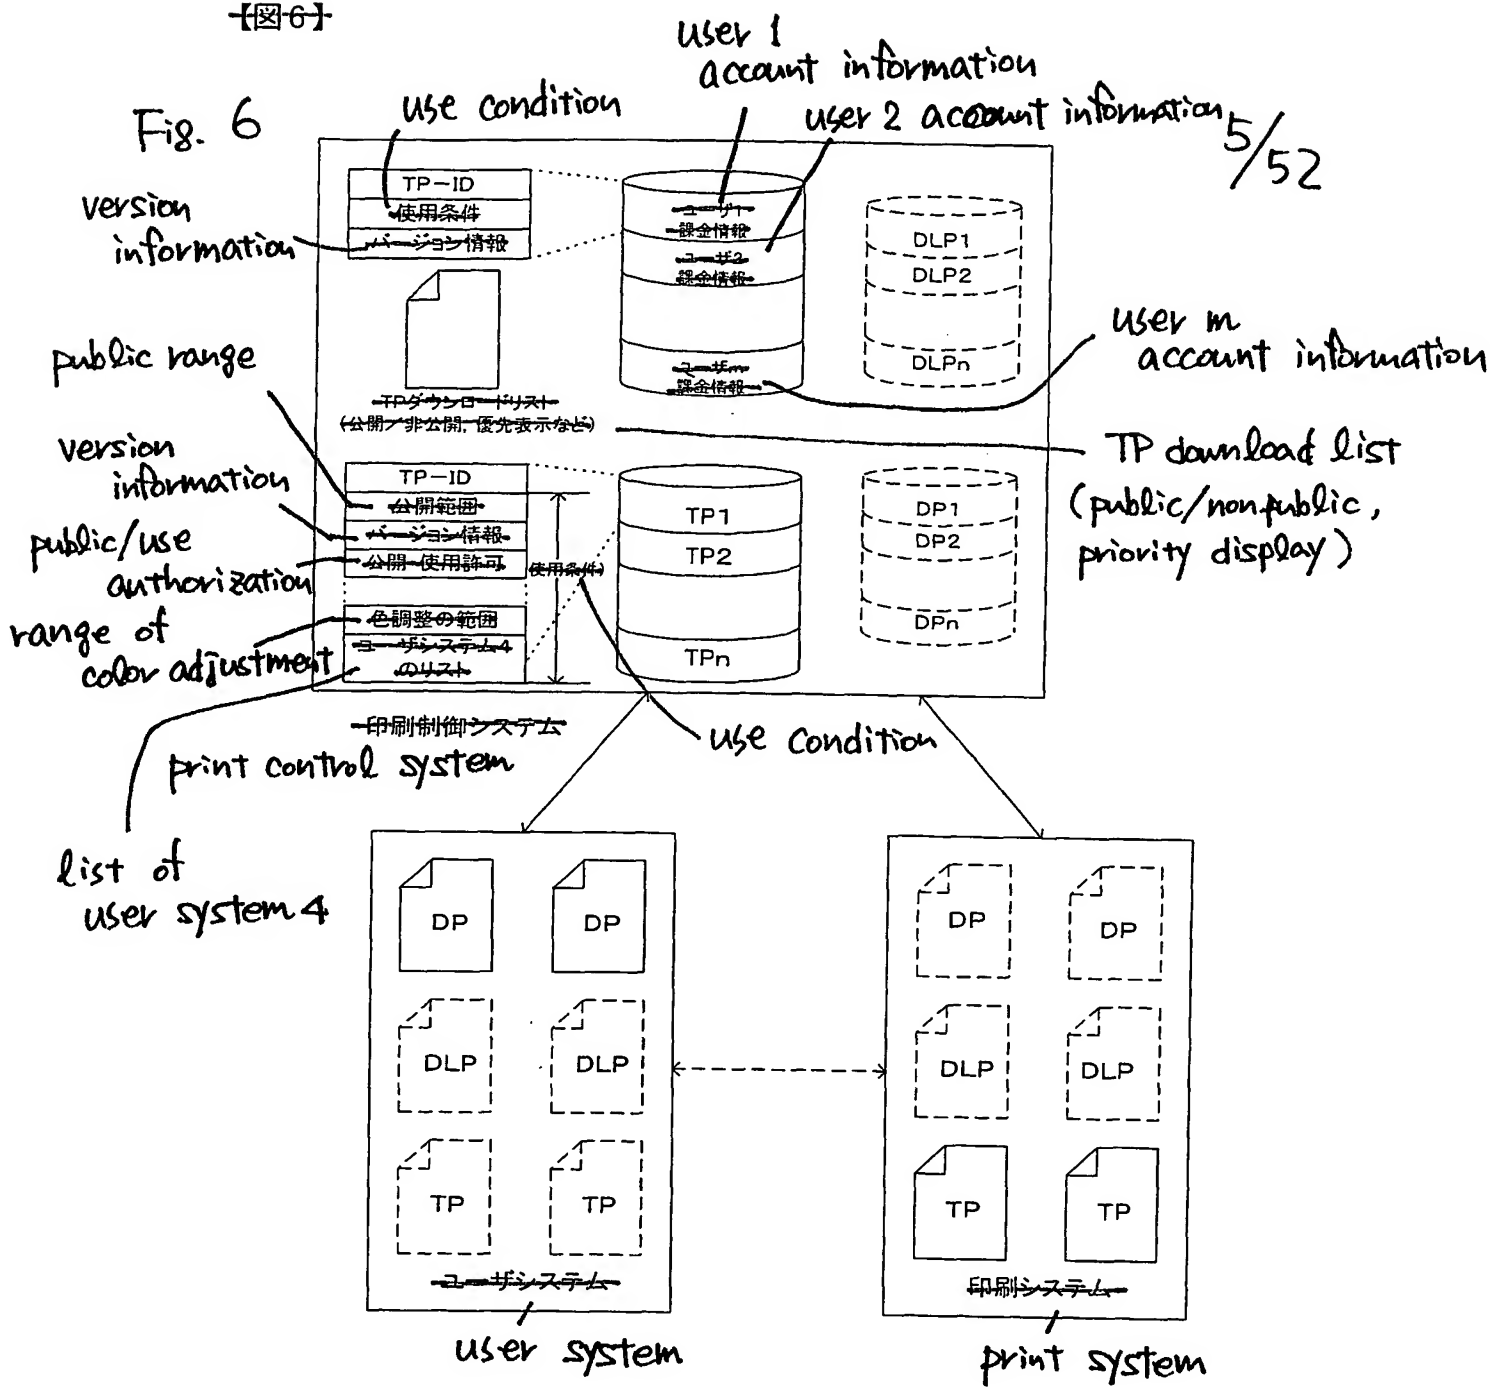 【図6】
Fig. 6
5/52
use condition
user 1
account information
user 2 account information
version
information
TP-ID
使用条件
バージョン情報
ユーザ1
課金情報
ユーザ2
課金情報
ユーザm
課金情報
DLP1
DLP2
DLPn
user m
account information
public range
TPダウンロードリスト
(公開/非公開, 優先表示など)
TP download list
(public/nonpublic,
priority display)
version
information
public/use
authorization
range of
color adjustment
TP-ID
公開範囲
バージョン情報
公開・使用許可
色調整の範囲
ユーザシステム4
のリスト
(使用条件)
TP1
TP2
TPn
DP1
DP2
DPn
印刷制御システム
print control system
use condition
list of
user system 4
DP DP
DLP DLP
TP TP
ユーザシステム
user system
DP DP
DLP DLP
TP TP
印刷システム
print system